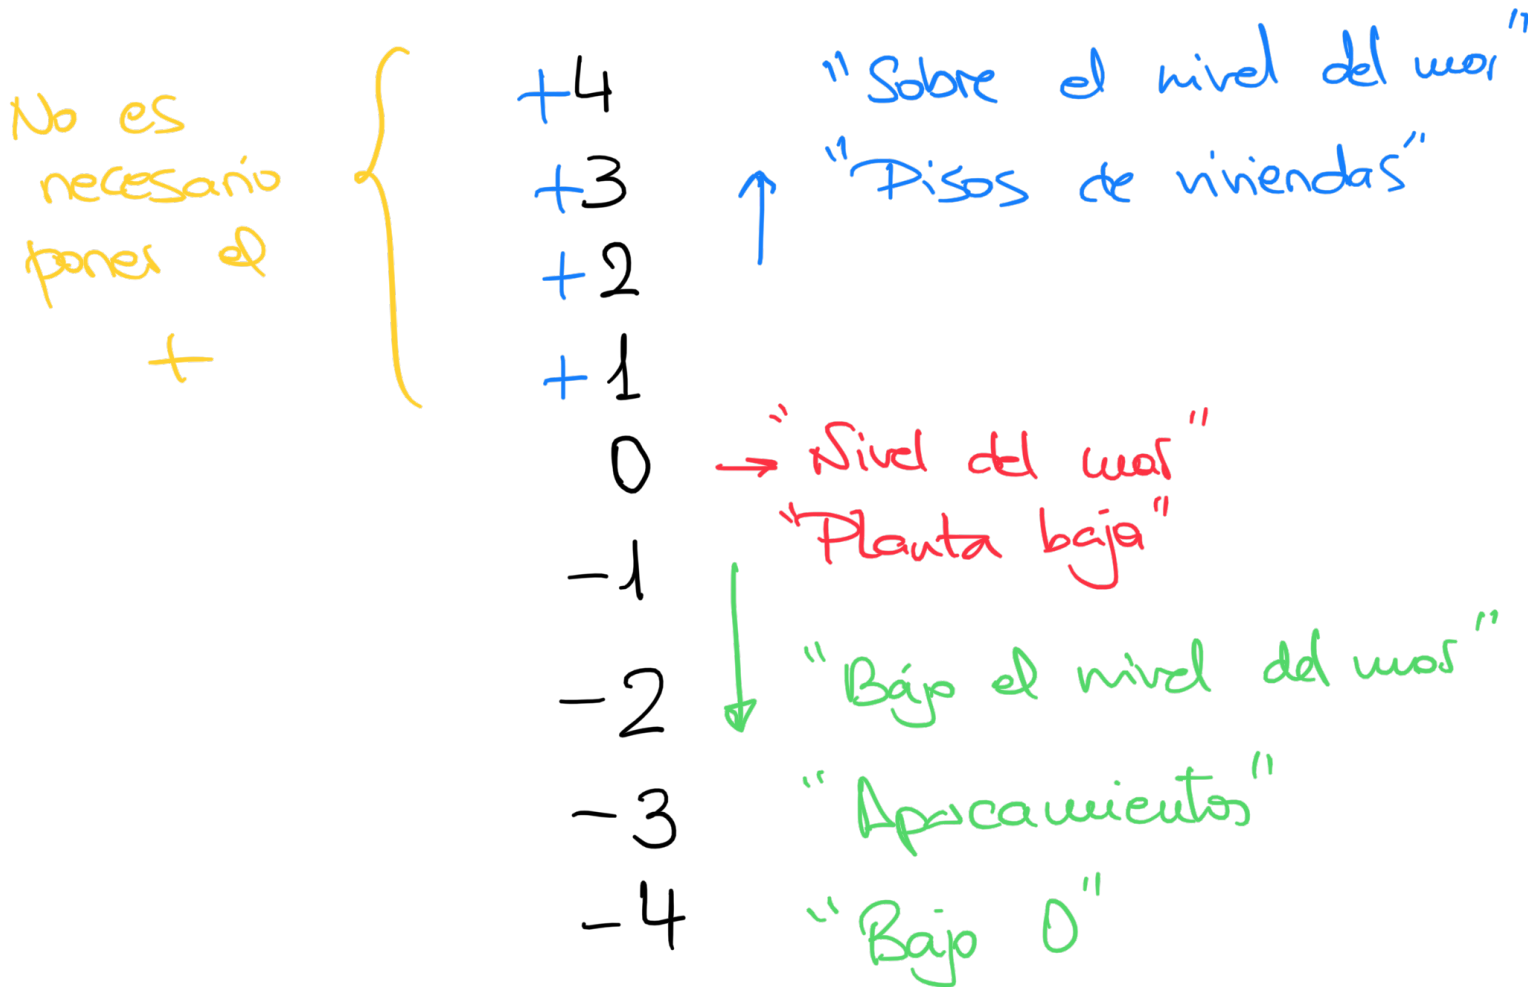 No es
necesario
poner el
+
+4
+3
+2
+1
0
-1
-2
-3
-4
"Sobre el nivel del mar"
"Pisos de viviendas"
"Nivel del mar"
"Planta baja"
"Bajo el nivel del mar"
"Aparcamientos"
"Bajo 0"